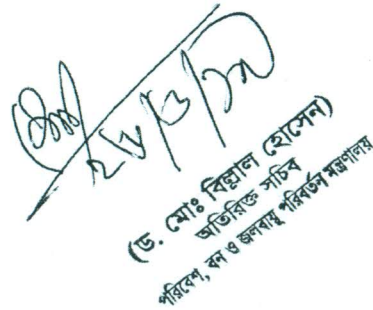 ২৮/৩/১৯
(ড. মোঃ বিল্লাল হোসেন)
অতিরিক্ত সচিব
পরিবেশ, বন ও জলবায়ু পরিবর্তন মন্ত্রণালয়